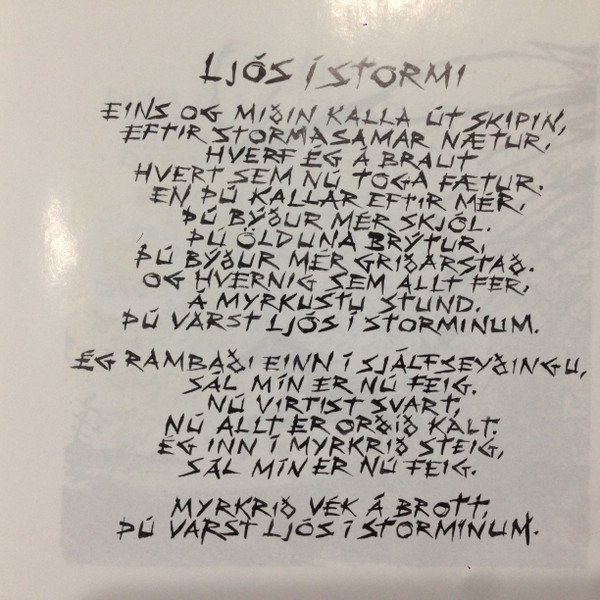 LJÓS Í STORMI
EINS OG MIÐIN KALLA ÚT SKIPIN,
EFTIR STORMASAMAR NÆTUR,
HVERF ÉG Á BRAUT
HVERT SEM NÚ TOGA FÆTUR.
EN ÞÚ KALLAR EFTIR MÉR,
ÞÚ BÝÐUR MÉR SKJÓL.
ÞÚ ÖLDUNA BRÝTUR,
ÞÚ BÝÐUR MÉR GRIÐARSTAÐ.
OG HVERNIG SEM ALLT FER,
Á MYRKUSTU STUND.
ÞÚ VARST LJÓS Í STORMINUM.
ÉG RAMBAÐI EINN Í SJÁLFSEYÐINGU,
SÁL MÍN ER NÚ FEIG.
NÚ VIRTIST SVART,
NÚ ALLT ER ORÐIÐ KALT.
ÉG INN Í MYRKRIÐ STEIG,
SÁL MÍN ER NÚ FEIG.
MYRKRIÐ VÉK Á BROTT,
ÞÚ VARST LJÓS Í STORMINUM.